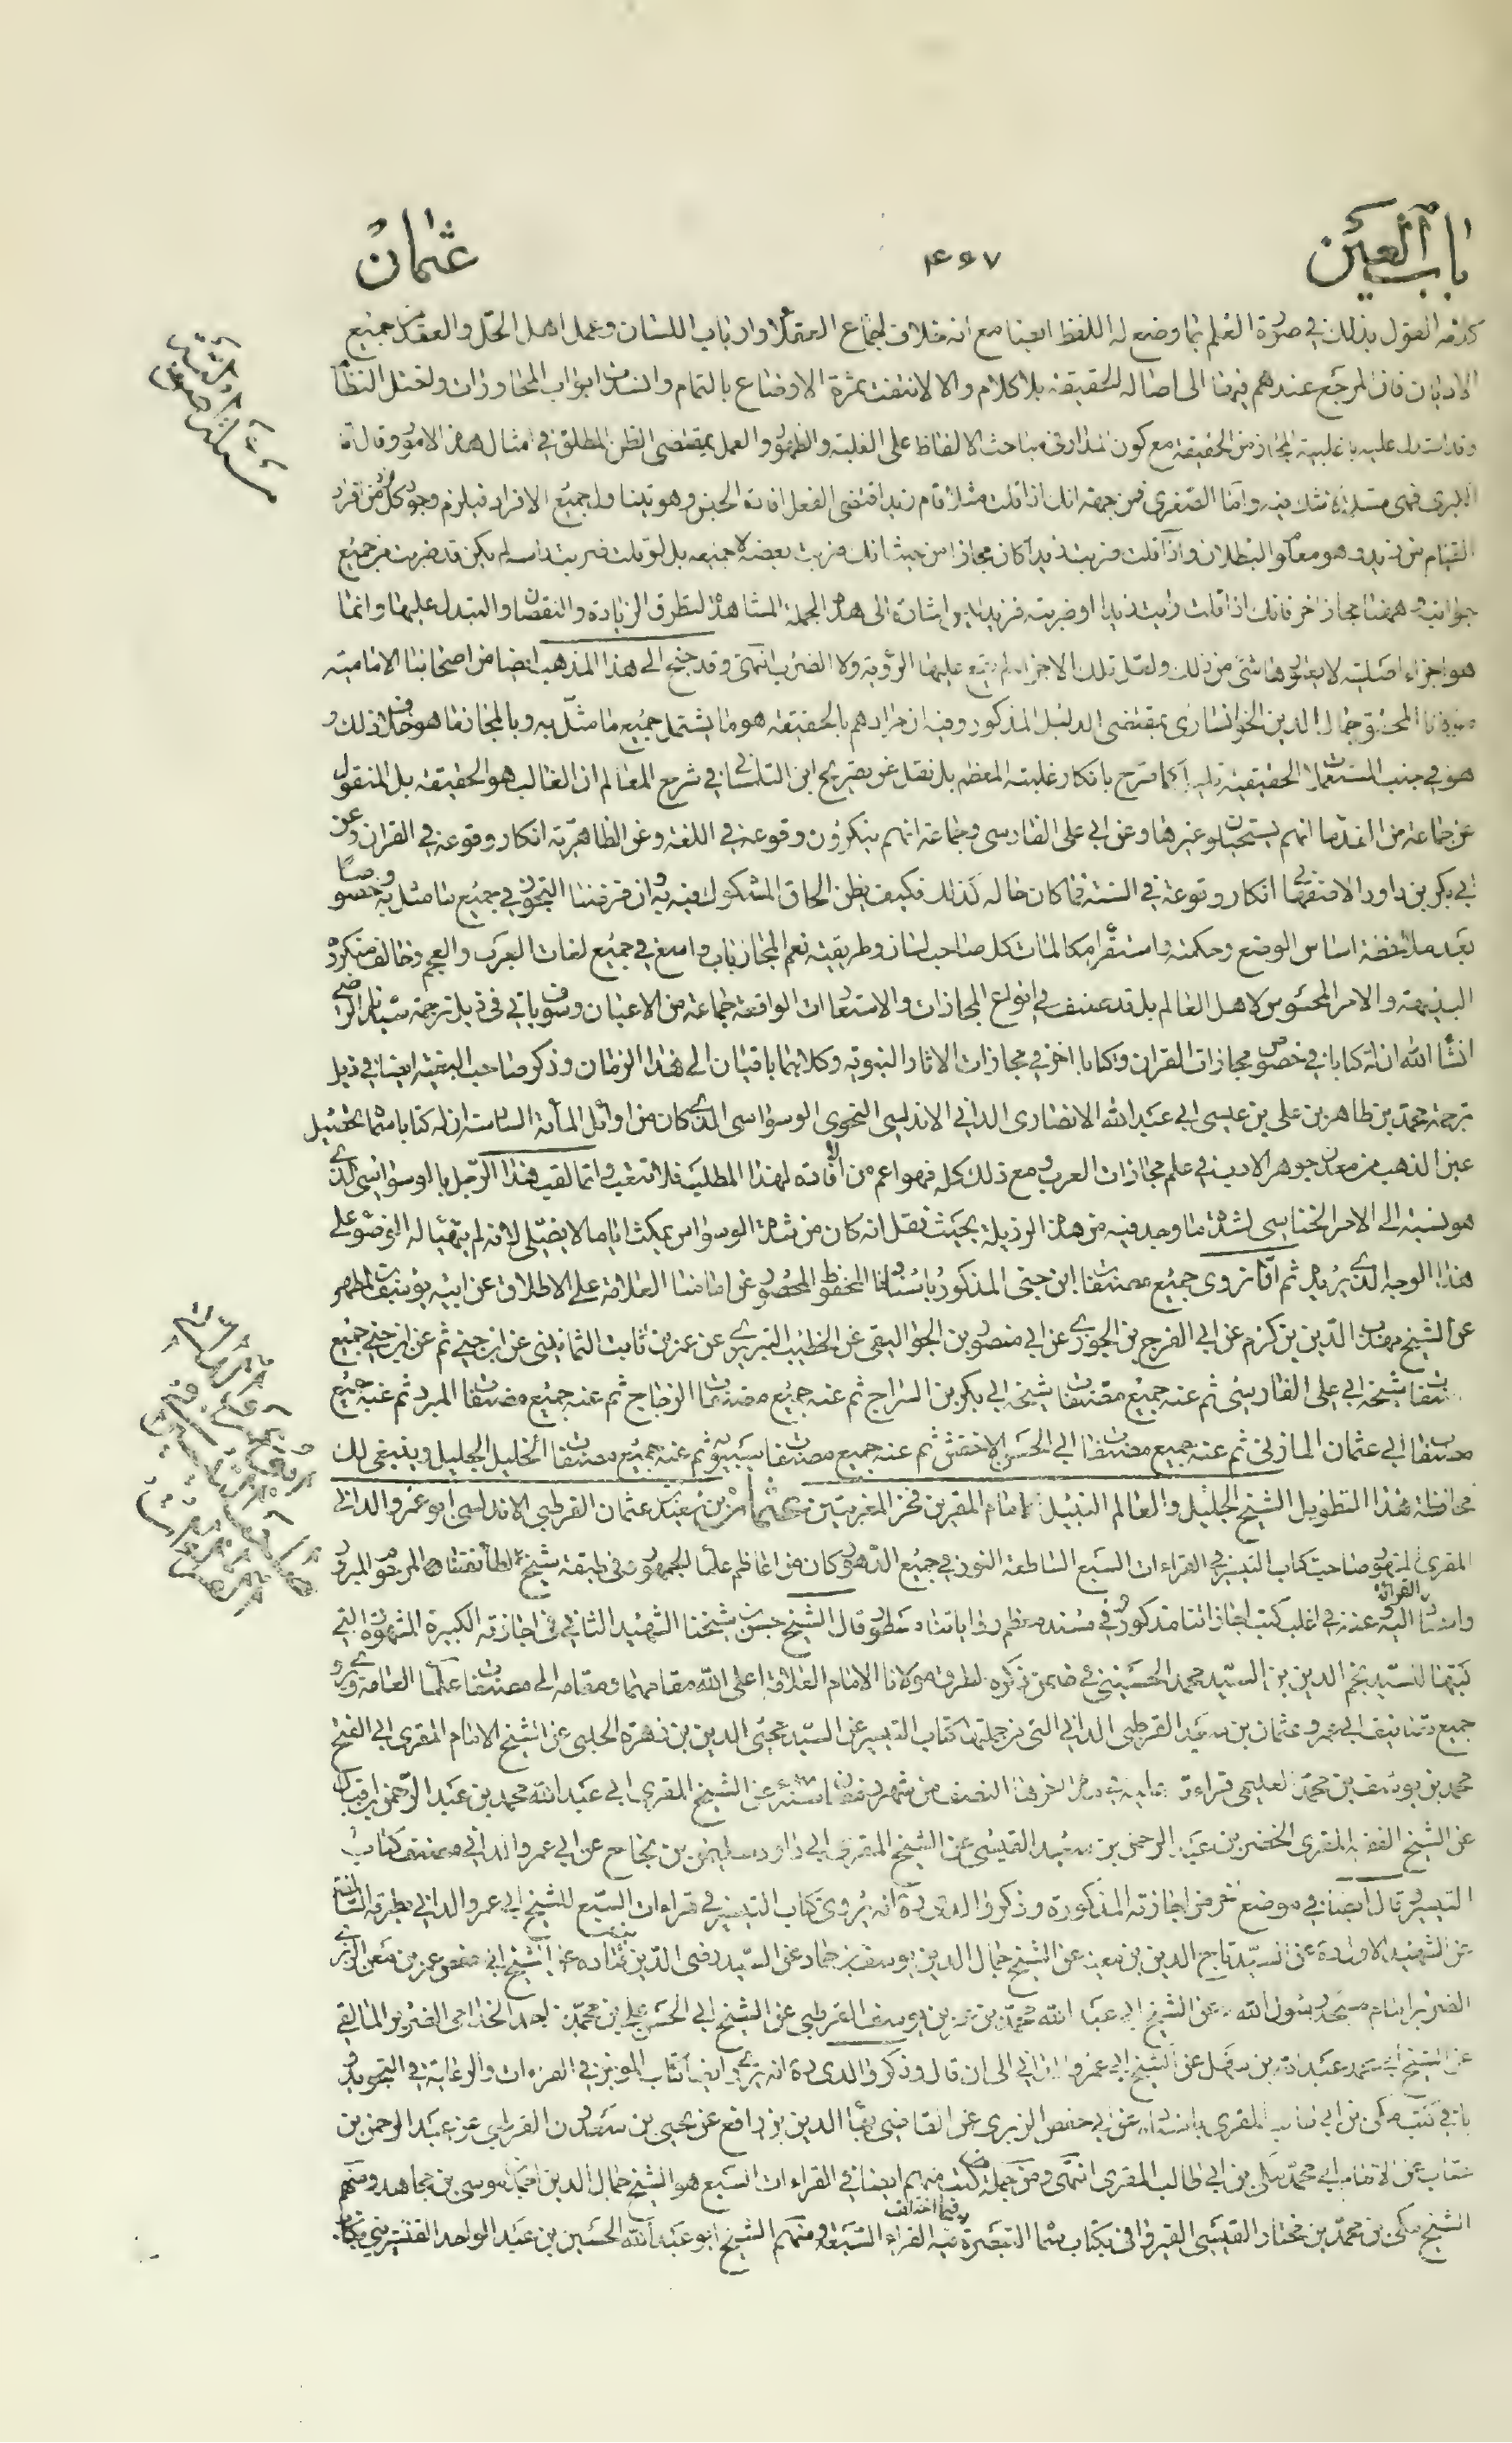 باب العين
٤٦٧
عثمان
كلفه القول بذلك في صورة العلم بما وضع له اللفظ ايضا مع انه خلاف اجماع العقلاء وارباب اللسان وعمل اهل الحل والعقد من جميع
الاديان فان المرجع عندهم فيها الى اصالة الحقيقة بلا كلام والا لانتفت ثمرة الاوضاع بالتمام وانسد ابواب المحاورات ولاختل النظام
وقد استدل عليه باغلبية المجاز من الحقيقة مع كون المدار في مباحث الالفاظ على الغلبة والظهور والعمل بمقتضى الظن المطلق في امثال هذه الامور وقال
الكبرى فهى مسلمة لا شك فيه واما الصغرى فمن جهة انك اذا قلت مثلا قام زيد اقتضى الفعل افادة الجنس وهو يتناول جميع الافراد فيلزم وجود كل فرد من افراد
القيام من زيد وهو معلوم البطلان واذا قلت ضربت زيدا كان مجازا من حيث انك ضربت بعضه لا جميعه بل لو قلت ضربت راسه لم يكن قد ضربت من جميع
جوانبه وههنا مجاز اخر فانك اذا قلت رايت زيدا او ضربته فزيد ليس اشارة الى هذه الجملة المشاهدة لتطرق الزيادة والنقصان والتبدل عليها وانما
هو اجزاء اصلية لا يعتريها شئ من ذلك ولعل تلك الاجزاء لم يقع عليها الرؤية ولا الضرب انتهى وقد جنح الى هذا المذهب ايضا من اصحابنا الامامية
المحقق جمال الدين الخوانسارى بمقتضى الدليل المذكور وفيه ان مرادهم بالحقيقة هو ما يشتمل جميع ما مثل به وبالمجاز ما هو خلاف ذلك و
هو في جنب المستعملات الحقيقية قليل كما صرح بانكار غلبته المعظم بل نقل عن تصريح ابن التلمسانى في شرح المعالم ان الغالب هو الحقيقة بل المنقول
عن جماعة من القدماء انهم وعن ابى على الفارسى وجماعة انهم ينكرون وقوعه في اللغة وعن الظاهرية انكار وقوعه في القران وعن
ابى بكر بن داود الاصفهانى انكار وقوعه في السنة فما كان حاله كذلك فكيف يظن الحاق المشكوك فيه به وان فرضنا التجوز في جميع ما مثل به خصوصا
بعد ملاحظة اساس الوضع وحكمته واستقراء مكالمات كل صاحب لسان وطريقته نعم المجاز باب واسع في جميع لغات العرب والعجم وخالف منكره
البديهة والامر المحسوس لاهل العالم بل قد صنف في انواع المجازات والاستعارات الواقعة جماعة من الاعيان وسوف ياتى في ذيل ترجمة سيدنا الرضى
انشاء الله ان له كتابا في خصوص مجازات القران وكتابا اخر في مجازات الاثار النبوية وكلاهما باقيان الى هذا الزمان وذكر صاحب البغية ايضا في ذيل
ترجمة محمد بن طاهر بن على بن عيسى ابى عبد الله الانصارى الدانى الاندلسى النحوى الوسواسى الذى كان من اوائل المائة السادسة ان له كتابا سماه تحصيل
عين الذهب من معدن جوهر الادب في علم مجازات العرب ومع ذلك كله فهو اعم من افادته لهذا المطلب فلا تغفل وانما لقب هذا الرجل بالوسواسى الذى
هو نسبة الى الامر الخناسى لشدة ما وجد فيه من هذه الرذيلة بحيث نقل انه كان من شدة الوسواس يمكث اياما لا يصلى لانه لم يتهيأ له الوضوء على
هذا الوجه الذى يريد ثم انا نروى جميع مصنفات ابن جنى المذكور باسنادنا المحفوظ المحصور عن امامنا العلامة على الاطلاق عن ابيه يوسف المطهر
عن الشيخ مهذب الدين بن كرم عن ابى الفرج بن الجوزى عن ابى منصور بن الجواليقى عن الخطيب التبريزى عن عمر بن ثابت الثمانينى عن ابن جنى ثم عن ابن جنى جميع
مصنفات شيخه ابى على الفارسى ثم عنه جميع مصنفات شيخه ابى بكر بن السراج ثم عنه جميع مصنفات الزجاج ثم عنه جميع مصنفات المبرد ثم عنه جميع
مصنفات ابى عثمان المازنى ثم عنه جميع مصنفات ابى الحسن الاخفش ثم عنه جميع مصنفات سيبويه ثم عنه جميع مصنفات الخليل الجليل وينبغى لك
محافظة هذا التطويل الشيخ الجليل والعالم النبيل امام المقرين فخر المغربيين عثمان بن سعيد عثمان القرطبى الاندلسى ابو عمرو الدانى
المقرى المشهور صاحب كتاب التيسير في القراءات السبع الساطعة النور في جميع الدهور كان من اعاظم علماء الجمهور وفى طبقة شيخ الطائفة المرحوم المبرور
واسناد القراءة اليه عنه في اغلب كتب اجازاتنا مذكور وفي مسند معظم رواياتنا مسطور قال الشيخ حسن بن شيخنا الشهيد الثانى فى اجازته الكبيرة المشهورة التى
كتبها للسيد نجم الدين بن السيد محمد الحسينى في ضمن ذكره لطرق مولانا الامام العلامة اعلى الله مقامهما ومقامه الى مصنفات علماء العامة ويروى
جميع تصانيف ابى عمرو عثمان بن سعيد القرطبى الدانى التى من جملتها كتاب التيسير عن السيد محيى الدين بن زهرة الحلبى عن الشيخ الامام المقرى ابى الفتح
محمد بن يوسف بن محمد العليمى قراءة عليه النصف من شهر رمضان سنة عن الشيخ المقرى ابى عبد الله محمد بن عبد الرحمن بن اقبال
عن الشيخ الفقيه المقرى الخضر بن عبد الرحمن بن سعيد القيسى عن الشيخ المقرى ابى داود سليمن بن نجاح عن ابى عمرو الدانى مصنف كتاب
التيسير وقال ايضا في موضع اخر من اجازته المذكورة وذكر والدى ره انه يروى كتاب التيسير في قراءات السبع للشيخ ابى عمرو الدانى بطرقه السالفة
عن الشهيد الاول ره عن السيد تاج الدين بن معية عن الشيخ جمال الدين يوسف بن حماد عن السيد رضى الدين بن قتاده عن الشيخ ابى حفص عمر بن معن الزبرى
الضرير امام مسجد رسول الله ص عن الشيخ ابى عبد الله محمد بن عمر بن يوسف القرطبى عن الشيخ ابى الحسن على بن محمد بن احمد الجذامى الضرير المالقى
عن الشيخ ابى محمد عبد الله بن سهل عن الشيخ ابى عمرو الدانى الى ان قال وذكر والدى ره انه يروى ايضا كتاب الموجز في القراءات والرعاية في التجويد و
باقى كتب مكى بن ابى طالب المقرى باسناده عن ابى حفص الزبرى عن القاضى بهاء الدين بن رافع عن يحيى بن سعدون القرطبى عن عبد الرحمن بن
عتاب عن الامام ابى محمد مكى بن ابى طالب المقرى انتهى ومن جملة من كتب منهم ايضا في القراءات السبع هو الشيخ جمال الدين احمد بن موسى بن مجاهد ومنهم
الشيخ مكى بن محمد بن مختار القيسى القيروانى بكتاب سماه التبصرة فيما اختلف فيه القراء السبعة ومنهم الشيخ ابو عبد الله الحسين بن عبد الواحد القنسرينى بكتاب